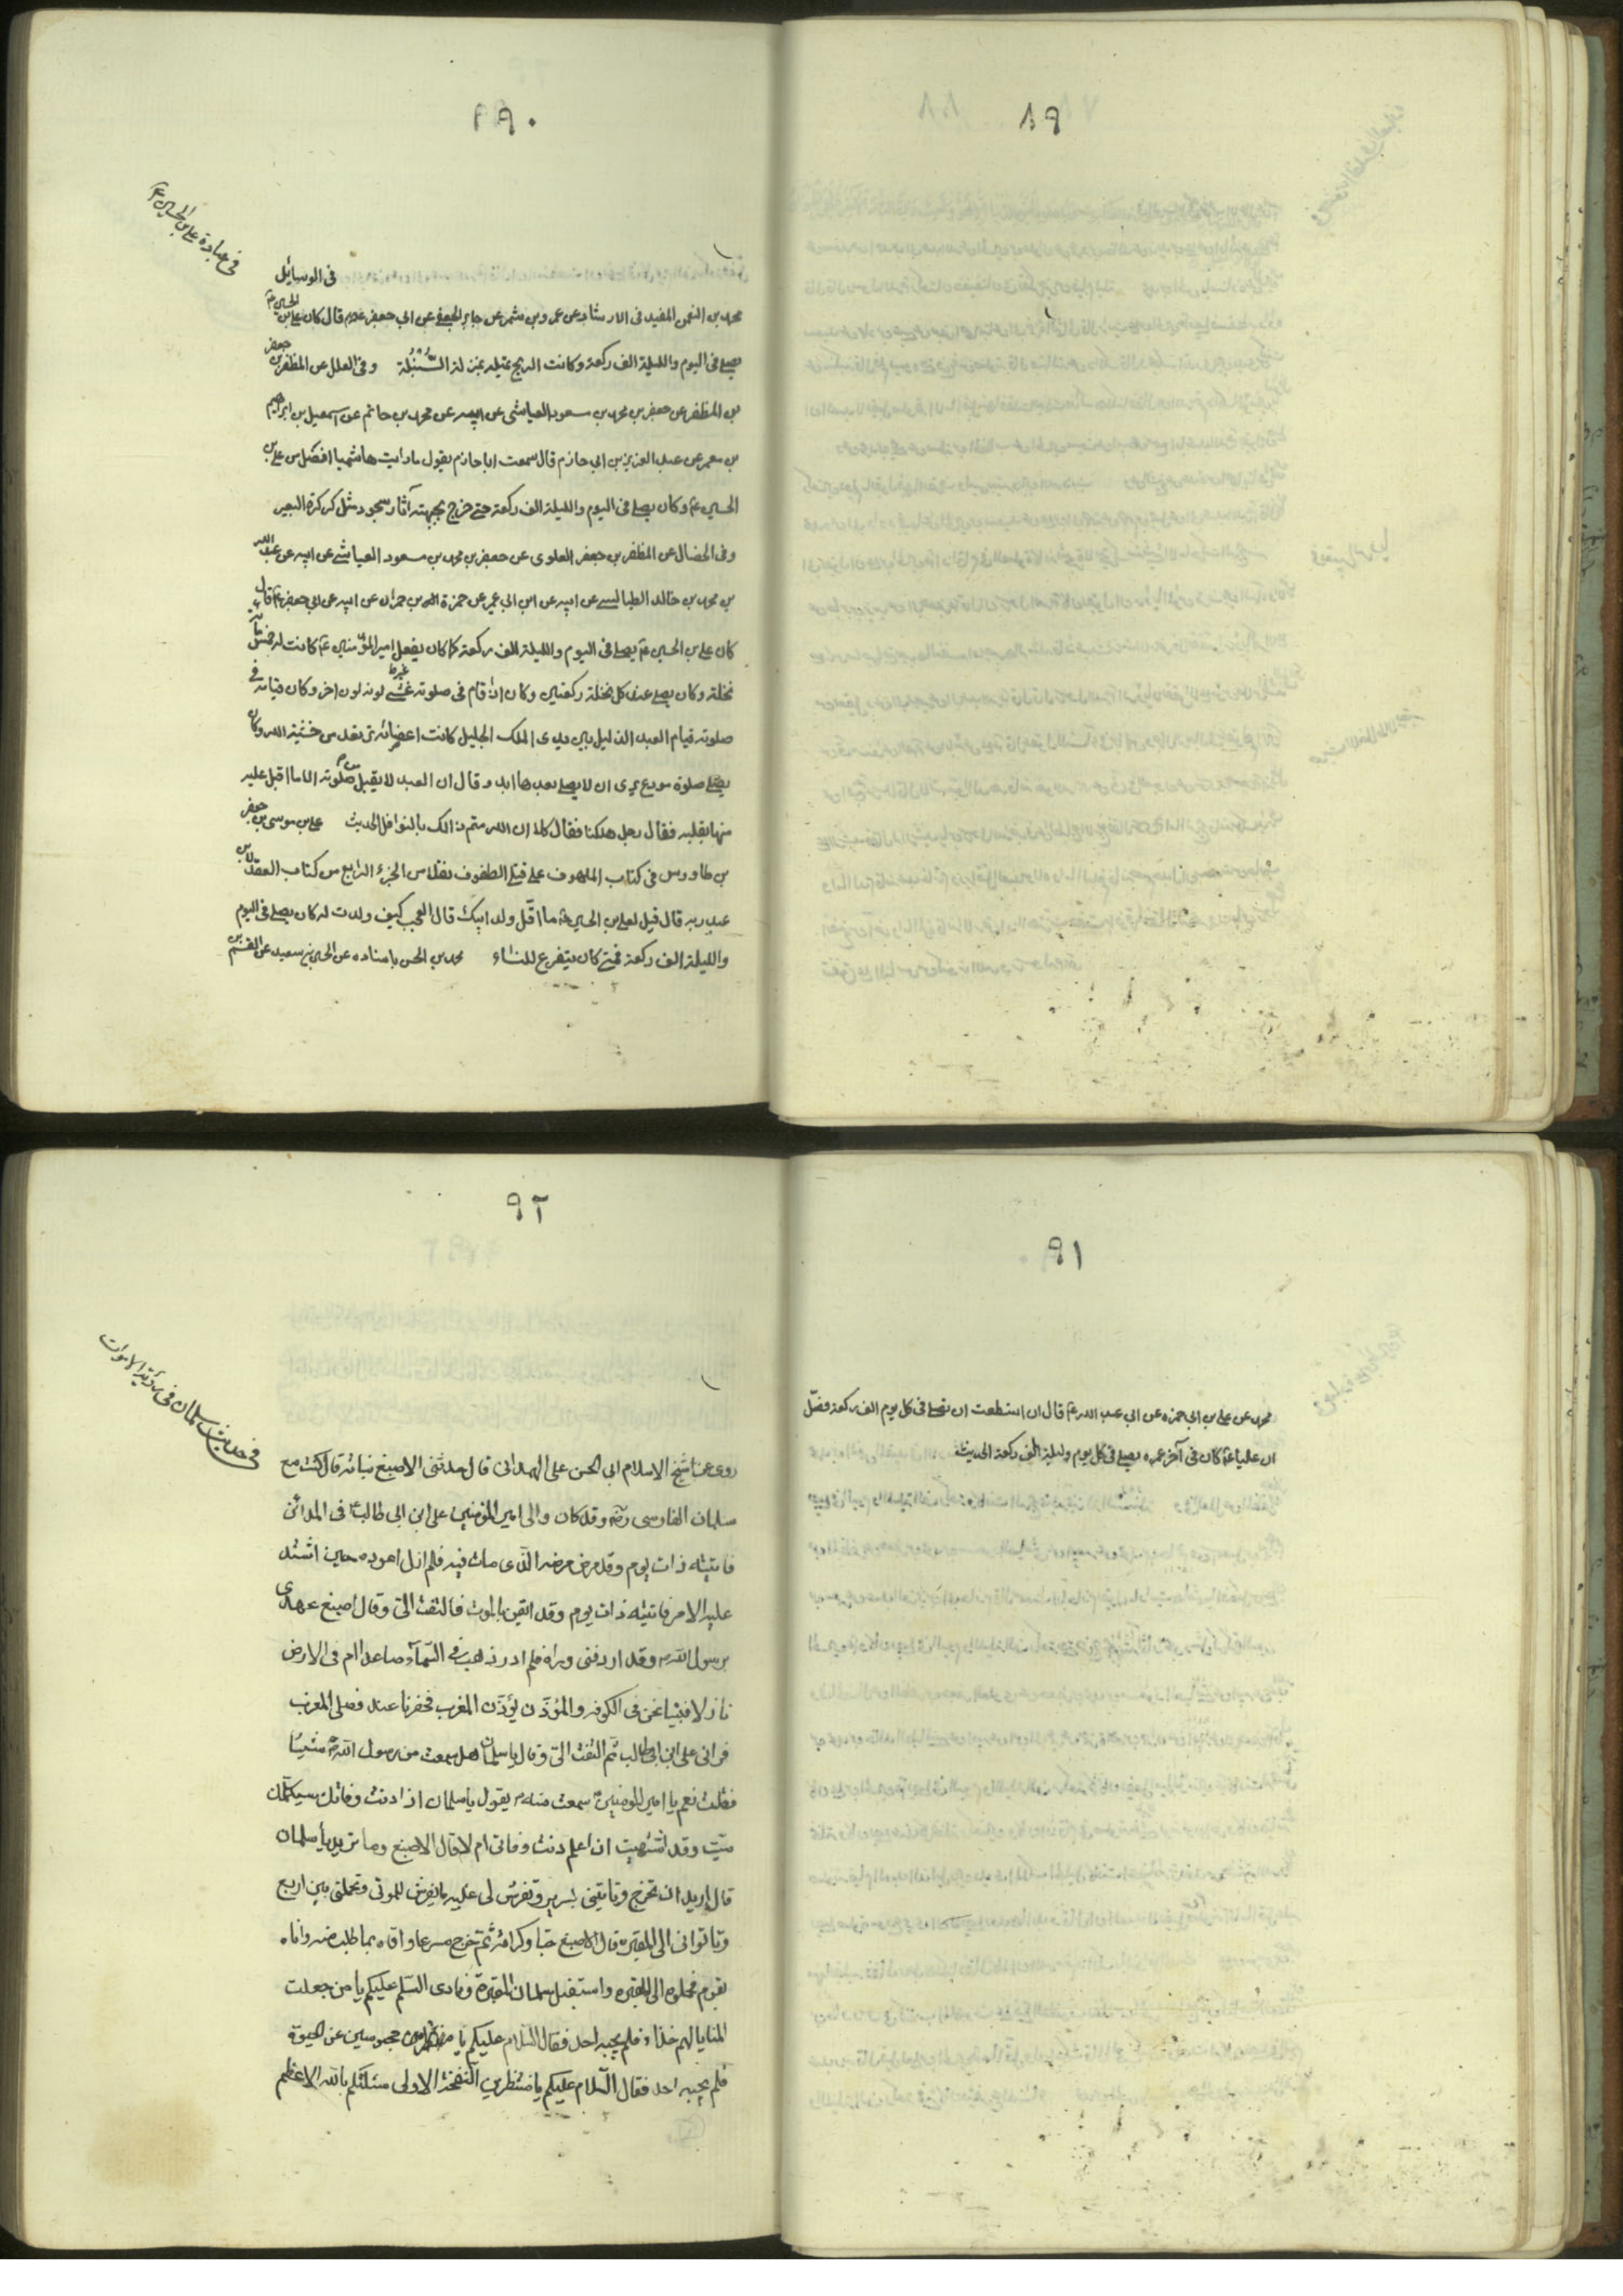 ٨٩
٩٠
فى عبادة على بن الحسين ع
فى الوسائل
محمد بن النعمن المفيد فى الارشاد عن عمرو بن شمر عن جابر الجعفى عن ابى جعفر ع قال كان على بن الحسين ع
يصلى فى اليوم والليلة الف ركعة وكانت الريح تميله بمنزلة السُّنْبُلَة وفى العلل عن المظفر بن جعفر
بن المظفر عن جعفر بن محمد بن مسعود العياشى عن ابيه عن محمد بن حاتم عن اسمعيل بن ابراهيم
بن معمر عن عبد العزيز بن ابى حازم قال سمعت ابا حازم يقول ما رايت هاشميا افضل من على بن
الحسين ع وكان يصلى فى اليوم والليلة الف ركعة حتى خرج بجبهته آثار سجوده مثل كركرة البعير
وفى الخصال عن المظفر بن جعفر العلوى عن جعفر بن محمد بن مسعود العياشى عن ابيه عن عبد الله
بن محمد بن خالد الطيالسى عن ابيه عن ابن ابى عمير عن حمزة بن حمران عن ابيه عن ابى جعفر ع قال
كان على بن الحسين ع يصلى فى اليوم والليلة الف ركعة كما كان يفعل امير المؤمنين ع كانت له خمسمائة
نخلة وكان يصلى عند كل نخلة ركعتين وكان اذا قام فى صلوته غشى لونه لون اخر وكان قيامه فى
صلوته قيام العبد الذليل بين يدى الملك الجليل كانت اعضائه ترتعد من خشية الله وكان
يصلى صلوة مودع يرى ان لا يصلى بعدها ابدا وقال ان العبد لا يقبل من صلوته الا ما اقبل عليه
منها بقلبه فقال رجل هلكنا فقال كلا ان الله متم ذالك بالنوافل الحديث على بن موسى بن جعفر
بن طاووس فى كتاب الملهوف على قتلى الطفوف نقلا من الجزء الرابع من كتاب العقد لابن
عبد ربه قال قيل لعلى بن الحسين ع ما اقل ولد ابيك قال العجب كيف ولدت له كان يصلى فى اليوم
والليلة الف ركعة فمتى كان يتفرغ للنساء محمد بن الحسن باسناده عن الحسين بن سعيد عن القسم بن
٩١
محمد عن على بن ابى حمزه عن ابى عبد الله ع قال ان استطعت ان تصلى فى كل يوم الف ركعة فصل
ان عليا ع كان فى آخر عمره يصلى فى كل يوم وليلة الف ركعة الحديث
٩٢
فى حديث سلمان فى رؤية الاموات
روى عن الشيخ الاسلام ابى الحسن على الهمدانى قال حدثنى الاصبغ نباته قال كنت مع
سلمان الفارسى رضه وقد كان والى امير المؤمنين على ابن ابى طالب ع فى المدائن
فاتيته ذات يوم وقد مرض مرضه الذى مات فيه فلم ازل اعوده حين اشتد
عليه الامر فاتيته ذات يوم وقد ايقن بالموت فالتفت الىّ وقال اصبغ عهدى
برسول الله ص وقد اردفنى وراه فلم ادر ذهب فى السمآء صاعدا ام فى الارض
نازلا فبينا نحن فى الكوفه والمؤذن يؤذن المغرب فحضرنا عنده فصلى المغرب
فرانى على ابن ابى طالب ثم التفت الىّ وقال يا سلمان هل سمعت من رسول الله ص شيئا
فقلت نعم يا امير المؤمنين ع سمعت منه ص يقول يا سلمان اذا دنت وفاتك سيكلمك
ميّت وقد اشتهيت ان اعلم دنت وفاتى ام لا قال الاصبغ وما تريد يا سلمان
قال اريد ان تخرج وتاتينى بسرير وتفرش لى عليه ما يفرش للموتى وتحملنى بين اربع
وتاتوانى الى المقبره قال الاصبغ حبّا وكرامة ثم خرج مسرعا وافاه بما طلب منه واتاه
بقوم فحملوه الى المقبره واستقبل سلمان المقبرة ونادى السّلم عليكم يا من جعلت
المنايا لهم غذاء فلم يجبه احد فقال السّلام عليكم يا محبوسين عن الحيوة
فلم يجبه احد فقال السّلام عليكم يا منتظرين النفخة الاولى سئلتكم بالله الاعظم